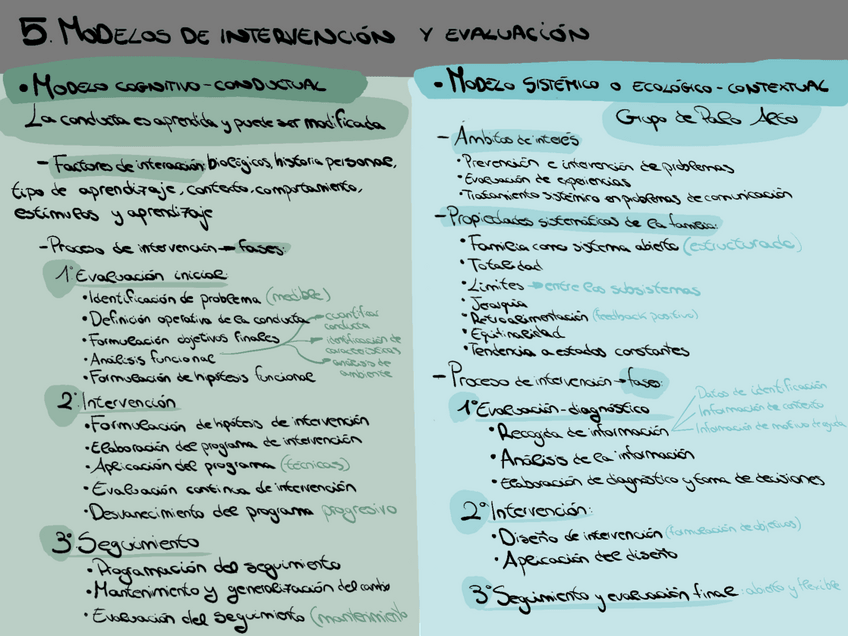 5. MODELOS DE INTERVENCIÓN Y EVALUACIÓN
• MODELO COGNITIVO-CONDUCTUAL
La conducta es aprendida y puede ser modificada
- Factores de interacción: biológicos, historia personal,
tipo de aprendizaje, contexto, comportamiento,
estímulos y aprendizaje
- Proceso de intervención → fases:
1º Evaluación inicial:
• Identificación de problema (medible)
• Definición operativa de la conducta → cuantificar conducta
• Formulación objetivos finales → identificación de características
• Análisis funcional → análisis de ambiente
• Formulación de hipótesis funcional
2º Intervención
• Formulación de hipótesis de intervención
• Elaboración del programa de intervención
• Aplicación del programa (técnicas)
• Evaluación continua de intervención
• Desvanecimiento del programa progresivo
3º Seguimiento
• Programación del seguimiento
• Mantenimiento y generalización del cambio
• Evaluación del seguimiento (mantenimiento
• MODELO SISTÉMICO O ECOLÓGICO-CONTEXTUAL
Grupo de Palo Alto
- Ámbitos de interés
• Prevención e intervención de problemas
• Evaluación de experiencias
• Tratamiento sistémico en problemas de comunicación
- Propiedades sistemáticas de la familia:
• Familia como sistema abierto (estructurado)
• Totalidad
• Límites → entre los subsistemas
• Jerarquía
• Retroalimentación (feedback positivo)
• Equifinalidad
• Tendencia a estados constantes
- Proceso de intervención → fases:
1º Evaluación-diagnóstico
• Recogida de información
Datos de identificación
Información de contexto
Información de motivo de ayuda
• Análisis de la información
• Elaboración de diagnóstico y toma de decisiones
2º Intervención:
• Diseño de intervención (formulación de objetivos)
• Aplicación del diseño
3º Seguimiento y evaluación final: abierto y flexible